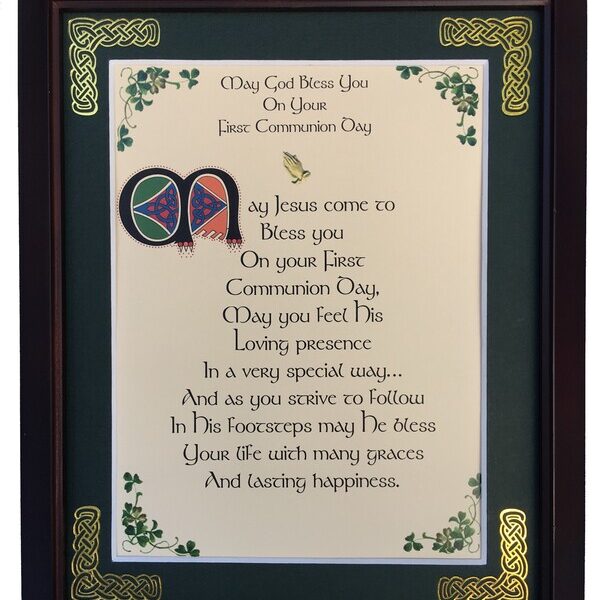 May God Bless You
On Your
First Communion Day
May Jesus come to
Bless you
On your First
Communion Day,
May you feel His
Loving presence
In a very special way...
And as you strive to follow
In His footsteps may He bless
Your life with many graces
And lasting happiness.